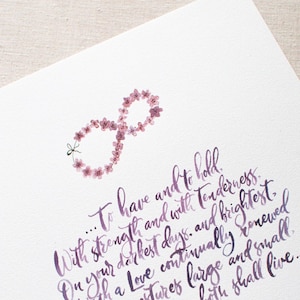 ...to have and to hold.
With strength and with tenderness.
On your darkest days, and brightest,
a Love continually renewed
large and small.
shall live...